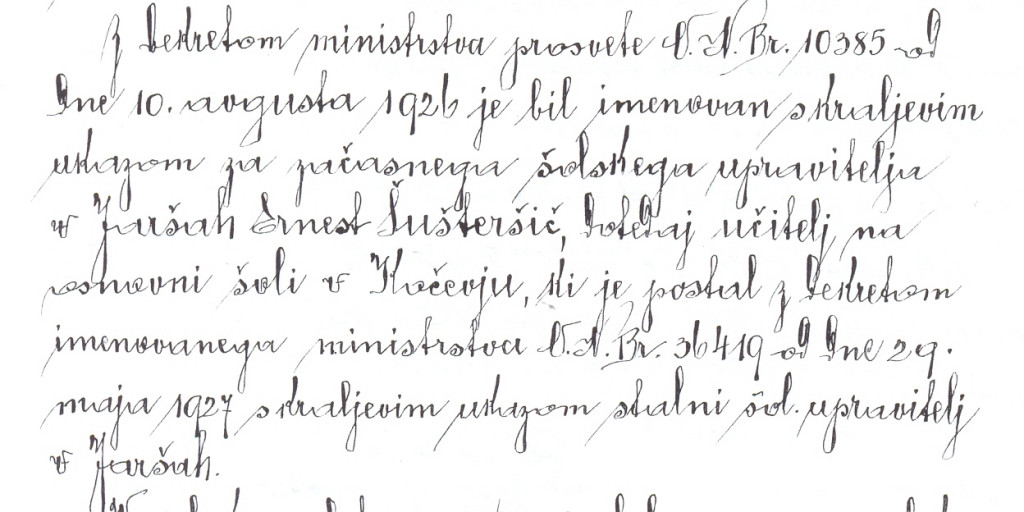 Z dekretom ministrstva prosvete O. N. Br. 10385 od
dne 10. avgusta 1926 je bil imenovan s kraljevim
ukazom za začasnega šolskega upravitelja
v Jaršah Ernest Šušteršič, dotedaj učitelj na
osnovni šoli v Kočevju, ki je postal z dekretom
imenovanega ministrstva O. N. Br. 36419 od dne 29.
maja 1927 s kraljevim ukazom stalni šol. upravitelj
v Jaršah.